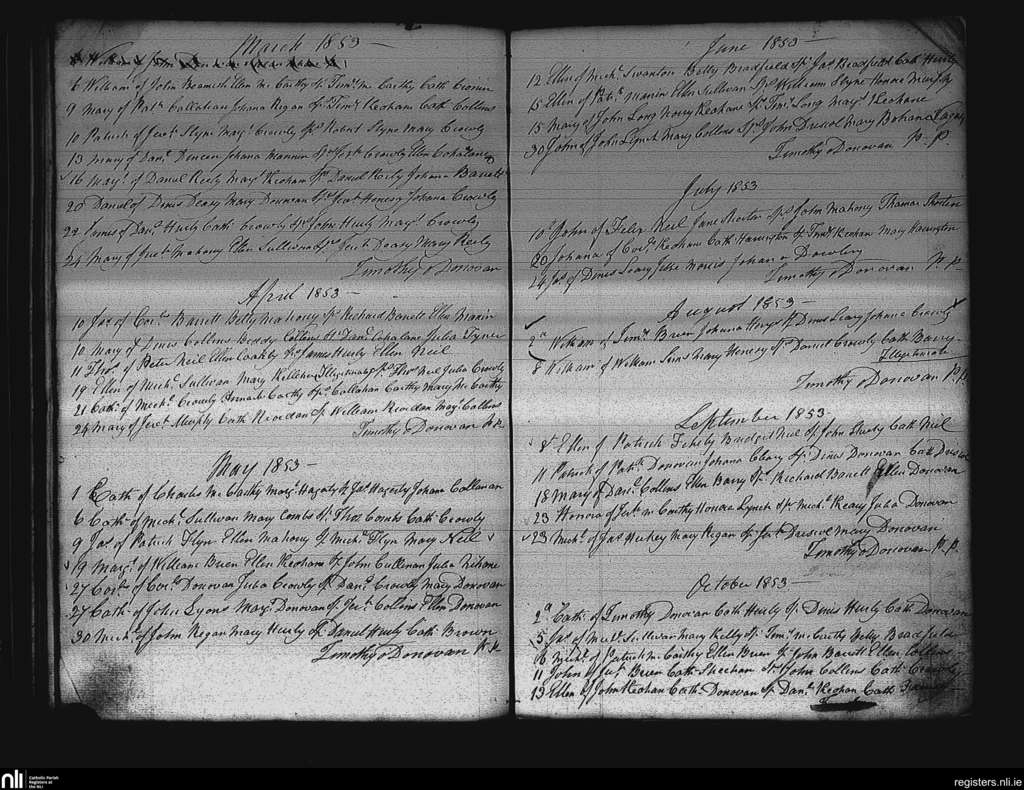 March 1853
6 William of John Beamish Ellen Mc Carthy Sp. Timy. Mc Carthy Cath Cronin
9 Mary of Patk. Callahan Johana Regan Sp. Timy. Keohane Cath Collins
10 Patrick of Jerh. Flyne Margt. Crowly Sps Robert Flyne Mary Crowly
13 Mary of Danl. Duncan Johana Mannin Sp. Jerh. Crowly Ellen Cohalane
16 Margt. of Daniel Reily Margt Keohane Sps Daniel Reily Johana Barrett
20 Daniel of Denis Deasy Mary Donovan Sps Johana Crowly
22 James of Danl. Hurly Cath Crowly Sps John Hurly Margt. Crowly
24 Mary of Jerh. Mahony Ellen Sullivan Sps Jerh Deasy Mary Reily
Timothy O Donovan
April 1853
10 Jas of Cors. Barrett Betty Mahony Sps Richard Barrett Ellen Manin
10 Mary of Denis Collins Biddy Collins Sp Danl. Cohalane Julia
11 Thos. of Peter Neil Ellen Coakly Sps James Hurly Ellen Neil
19 Ellen of Michl. Sullivan Mary Kelleher Illegitimate Sps Thos Neil Julia Crowly
21 Cath. of Michl. Crowly Carthy Sps Callahan Carthy Mary Mc Carthy
24 Mary of Jerh. Murphy Cath Reordan Sp William Reordan Margt Collins
Timothy O Donovan P.P.
May 1853
1 Cath of Charles Mc Carthy Margt Hagarty Sp Jas Hagarty Johana Callanan
6 Cath. of Michl. Sullivan Mary Combs Sp. Thos Combs Cath Crowly
9 Jas. of Patrick Flyn Ellen Mahony Sp Michl. Flyn Mary Neil
19 Margt. of William Brien Ellen Keohane Sp John Cullinan Julia
27 Cors. of Cors. Donovan Julia Crowly Sp Danl. Crowly Mary Donovan
27 Cath. of John Lyons Margt Donovan Sp Jerh. Collins Ellen Donovan
30 Michl. of John Regan Mary Hurly Sp Daniel Hurly Cath Brown
Timothy O Donovan P.P.
June 1853
12 Ellen of Michl. Swanton Betty Bradfield Sp Jas Bradfield Cath Hurly
15 Ellen of Patk. Manin Ellen Sullivan Sps William Flyne Honora Murphy
15 Mary of John Long Mary Keohane Sps Timy. Long Margt. Keohane
30 John of John Lynch Mary Collins Sps John Driscol Mary
Timothy O Donovan P.P.
July 1853
10th John of Felix Neil Jane Shorten Sps John Mahony Thomas Shorten
20 Johana of Cors. Keohane Cath Harrington Sp Timy Keohane Mary Harrington
24 Jas. of Denis Leary Morris Johana Dowling
Timothy O Donovan P.P.
August 1853
2d William of Timy. Brien Johana Hayes Sp Denis Leary Johana Crowly
8 William of William Mary Sps Daniel Crowly Cath Barry
Illegitimate
Timothy O Donovan P.P.
September 1853
8th Ellen of Patrick Fehily Bridget Neil Sp John Hurly Cath Neil
11 Patrick of Patk. Donovan Johana Cleary Sp. Denis Donovan Cath Driscol
18 Mary of Danl. Collins Ellen Barry Sps. Richard Barrett Ellen Donovan
23 Honora of Jerh. Mc Carthy Honora Lynch Sps Michl. Reary Julia Donovan
23 Michl. of Jas Hickey Mary Regan Sp Jerh Driscol Mary Donovan
Timothy O Donovan P.P.
October 1853
2d Cath. of Timothy Donovan Cath Hurly Sps Denis Hurly Cath Donovan
5 Jas. of Michl. Sullivan Mary Kelly Sp Timy. Mc Carthy Betty Bradfield
6 Michl. of Patrick Mc Carthy Ellen Brien Sp John Barrett Ellen Collins
11 John of Jerh. Brien Cath Sheehan Sps John Collins Cath Crowly
13 Ellen of John Keohan Cath Donovan Sp Danl. Keohan Cath
nli
Catholic Parish
Registers at
the NLI
registers.nli.ie